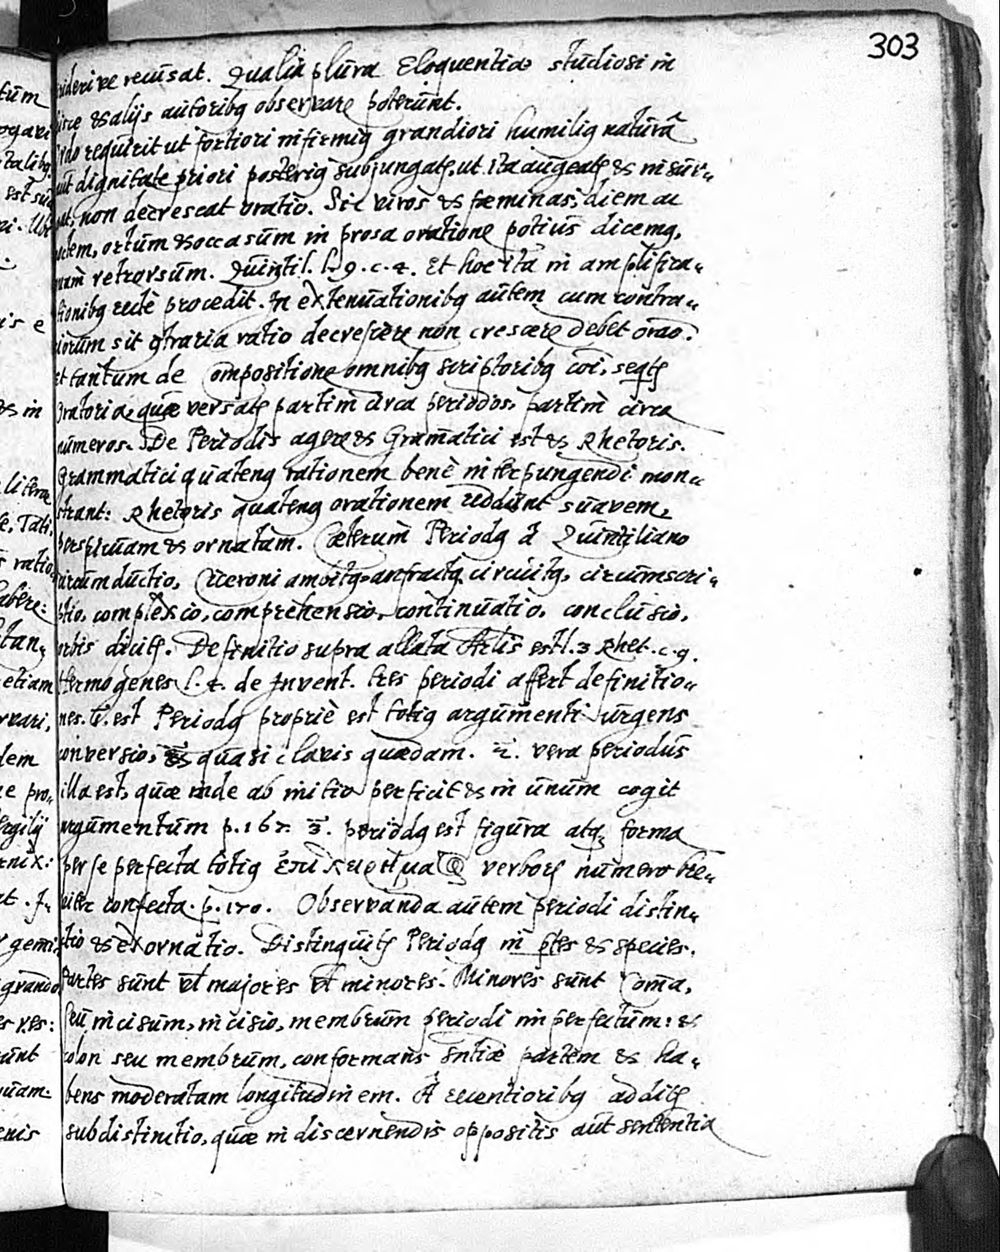 303
videri ve recusat. Qualia plura Eloquentiæ studiosi in
hisce & alijs autoribq observare poterunt.
Ordo requirit ut fortiori infirmiq grandiori humiliq naturâ
aut dignitate priori posteriq subjungatr, ut ita augeatr & insur-
gat, non decrescat oratio. Sic viros & fæminas, diem ac
noctem, ortum & occasum in prosa oratione potius dicemq,
quam retrorsum. Quintil. l. 9. c. 4. Et hoc ita in amplifica-
tionibq rectè procedit. In extenuationibq autem cum contra-
riorum sit qtraria ratio decrescere non crescere debet orao.
Et tantum de Compositione omnibq scriptoribq coi, seqtr
Oratoria quæ versatr partim circa periodos, partim circa
numeros. De Periodis agere & Gramatici est & Rhetoris.
Grammatici quatenq rationem benè interpungendi mon-
strant: Rhetoris quatenq orationem reddunt suavem,
perspicuam & ornatam. Cæterum Periodq à Quintiliano
circumductio, Ciceroni ambitq anfractq circuitq, circumscri-
ptio, complexio, comprehensio, continuatio, conclusio,
orbis dicitr. Definitio supra allata Aristotelis est l. 3 Rhet. c. 9.
Hermogenes l. 4. de Invent. tres periodi affert definitio-
nes. 1. est Periodq propriè est totiq argumenti urgens
conversio, & quasi clavis quædam. 2. vera periodus
illa est, quæ inde ab initio perficit & in unum cogit
argumentum p. 167. 3. periodq est figura atq forma
per se perfecta totiq verborum numero bre-
viter confecta. p. 170. Observanda autem periodi distin-
ctio & exornatio. Distinguitr Periodq in ptes & species.
Partes sunt vel majores vel minores. Minores sunt Coma,
seu incisum, incisio, membrum periodi imperfectum: &
colon seu membrum, conformans sntiæ partem & ha-
bens moderatam longitudinem. A recentioribq additr
subdistinctio, quæ in discernendis oppositis aut sententia